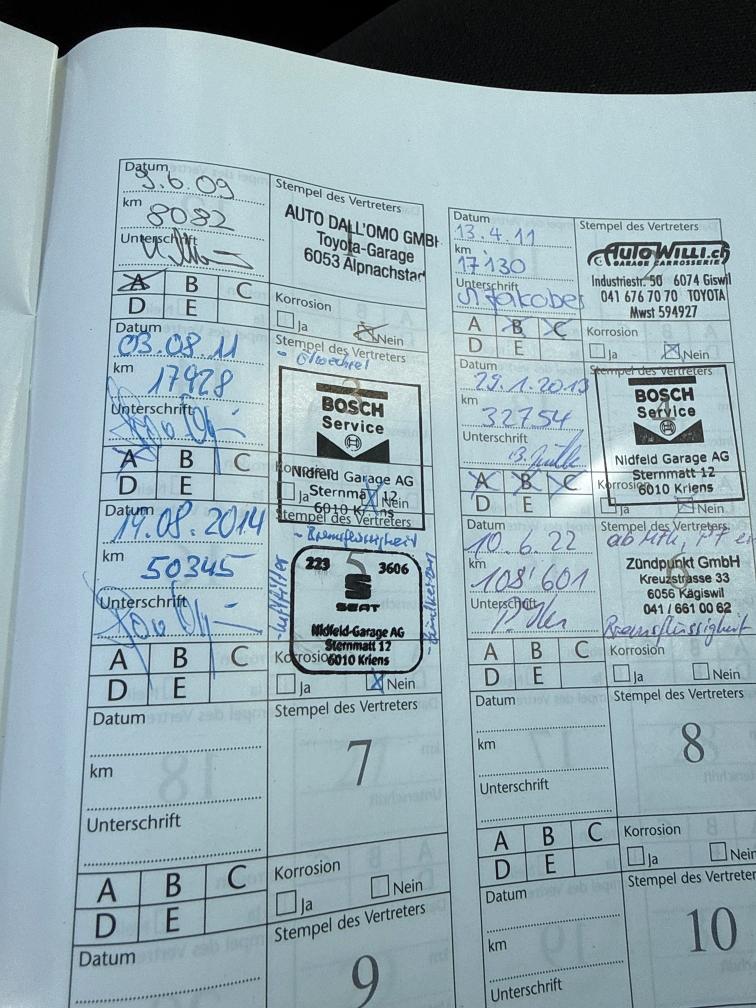 Datum
9.6.09
km
8082
Unterschrift
A B C
D E
Stempel des Vertreters
AUTO DALL'OMO GMBH
Toyota-Garage
6053 Alpnachstad
Korrosion
Ja Nein
Datum
13.4.11
km
17'130
Unterschrift
A B C
D E
Stempel des Vertreters
AUTO WILLI.ch
GARAGE CARROSSERIE
Industriestr. 50 6074 Giswil
041 676 70 70 TOYOTA
Mwst 594927
Korrosion
Ja Nein
Datum
03.08.11
km
17928
Unterschrift
A B C
D E
Stempel des Vertreters
- Ölwechsel
3
BOSCH
Service
Nidfeld Garage AG
Sternmatt 12
6010 Kriens
Korrosion
Ja Nein
Datum
29.1.2013
km
32754
Unterschrift
A B C
D E
Stempel des Vertreters
4
BOSCH
Service
Nidfeld Garage AG
Sternmatt 12
6010 Kriens
Korrosion
Ja Nein
Datum
19.08.2014
km
50345
Unterschrift
A B C
D E
Stempel des Vertreters
- Bremsflüssigkeit
- Luftfilter
5
223 3606
SEAT
Nidfeld-Garage AG
Sternmatt 12
6010 Kriens
Korrosion
Ja Nein
Datum
10.6.22
km
108'601
Unterschrift
A B C
D E
Stempel des Vertreters
6
Zündpunkt GmbH
Kreuzstrasse 33
6056 Kägiswil
041 / 661 00 62
Bremsflüssigkeit
Korrosion
Ja Nein
Datum
km
Unterschrift
A B C
D E
Stempel des Vertreters
7
Korrosion
Ja Nein
Datum
km
Unterschrift
A B C
D E
Stempel des Vertreters
8
Korrosion
Ja Nein
Datum
Stempel des Vertreters
9
Datum
km
Unterschrift
Stempel des Vertreters
10